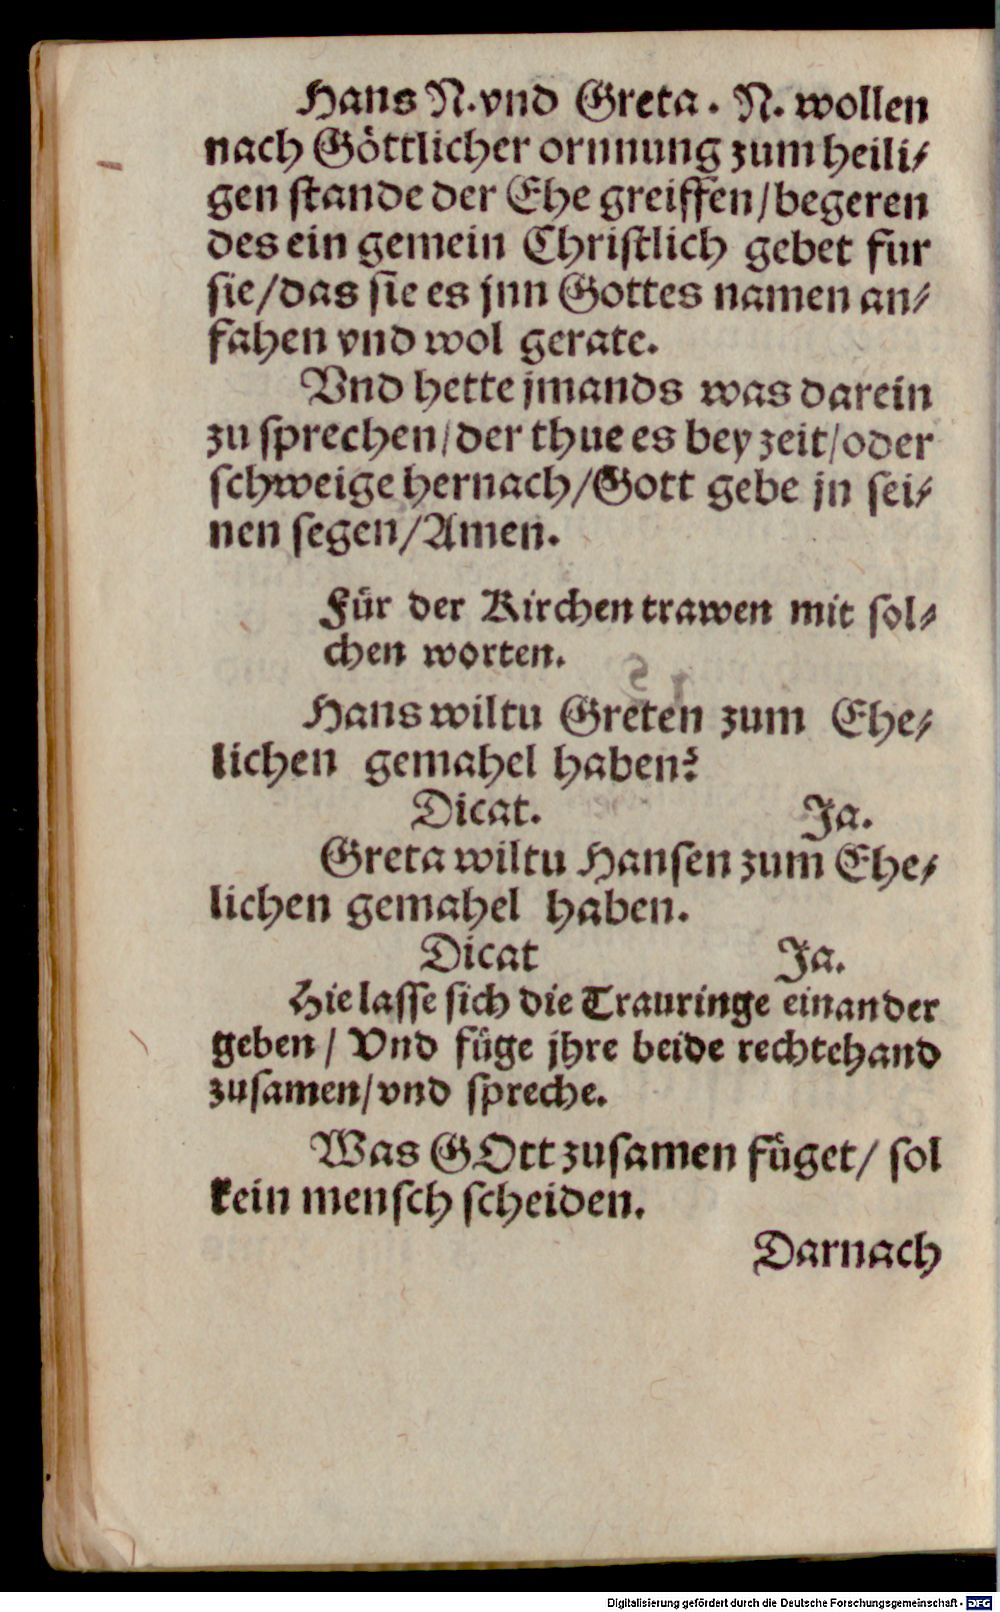 Hans N. vnd Greta. N. wollen
nach Göttlicher ornnung zum heili⸗
gen stande der Ehe greiffen/begeren
des ein gemein Christlich gebet fur
sie/das sie es jnn Gottes namen an⸗
fahen vnd wol gerate.
Vnd hette jmands was darein
zu sprechen/der thue es bey zeit/oder
schweige hernach/Gott gebe jn sei⸗
nen segen/Amen.
Für der Kirchen trawen mit sol⸗
chen worten.
Hans wiltu Greten zum Ehe⸗
lichen gemahel haben?
Dicat. Ja.
Greta wiltu Hansen zum Ehe⸗
lichen gemahel haben.
Dicat Ja.
Hie lasse sich die Trauringe einander
geben/ Vnd füge jhre beide rechtehand
zusamen/vnd spreche.
Was GOtt zusamen füget/ sol
kein mensch scheiden.
Darnach
Digitalisierung gefördert durch die Deutsche Forschungsgemeinschaft - DFG